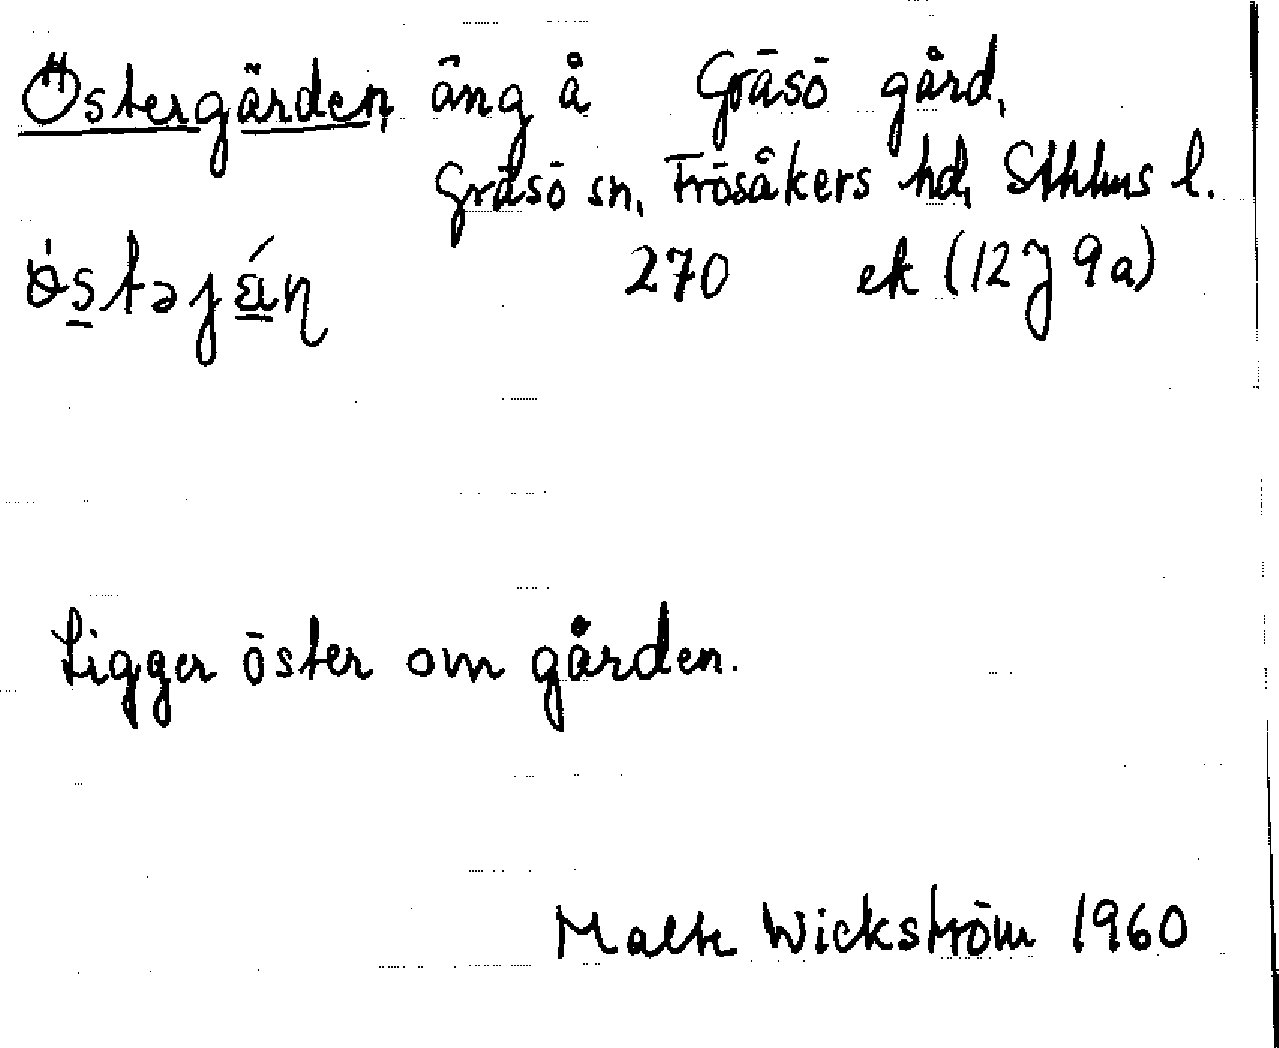 Östergärden, äng å Gräsö gård,
Gräsö sn, Frösåkers hd, Sthlms l.
270 ek (12J 9a)
Ligger öster om gården.
Malte Wickström 1960